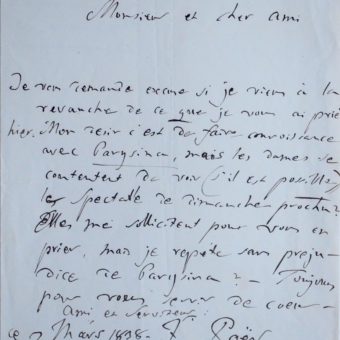 Monsieur et cher ami
Je vous demande excuse si je viens à la
revanche de ce que je vous ai prié
hier. Mon desir c'est de faire connoissance
avec Parysina, mais les dames se
contentent de voir (s'il est possible)
le spectacle de dimanche prochain?
Elles me sollicitent pour vous en
prier, mais je repete sans preju-
dice de Parysina? - Toujours
pour vous servir de coeur
ami et serviteur
ce Mars 1838. F. Paër